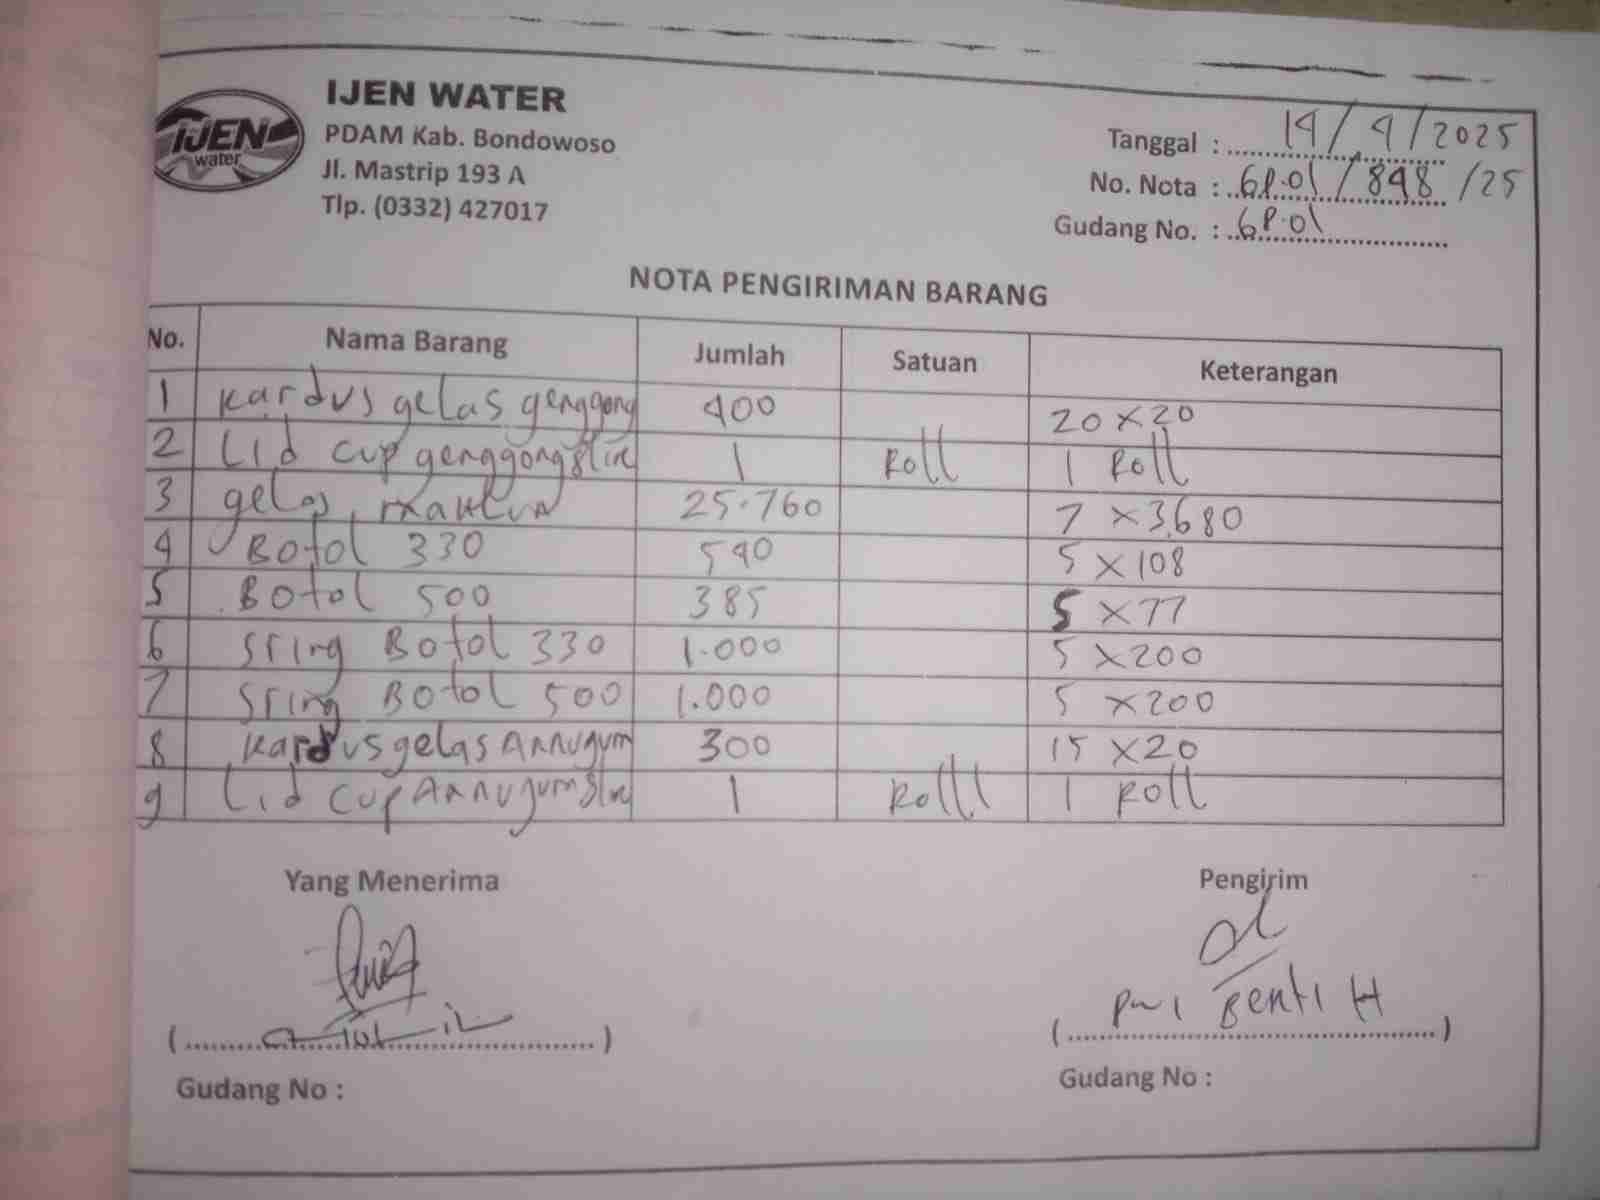 IJEN WATER
PDAM Kab. Bondowoso
Jl. Mastrip 193 A
Tlp. (0332) 427017
IJEN
water
Tanggal : 14/4/2025
No. Nota : 6P.01/848/25
Gudang No. : 6P.01
NOTA PENGIRIMAN BARANG
No. Nama Barang Jumlah Satuan Keterangan
1 Kardus gelas genggong 400 20 x 20
2 Lid cup genggong 8 line 1 Roll 1 Roll
3 gelas 25.760 7 x 3.680
4 Botol 330 540 5 x 108
5 Botol 500 385 5 x 77
6 Sring Botol 330 1.000 5 x 200
7 Sring Botol 500 1.000 5 x 200
8 Kardus gelas Annugum 300 15 x 20
9 Lid cup Annugum 8 line 1 Rolll 1 Roll
Yang Menerima Pengirim
H
Gudang No : Gudang No :